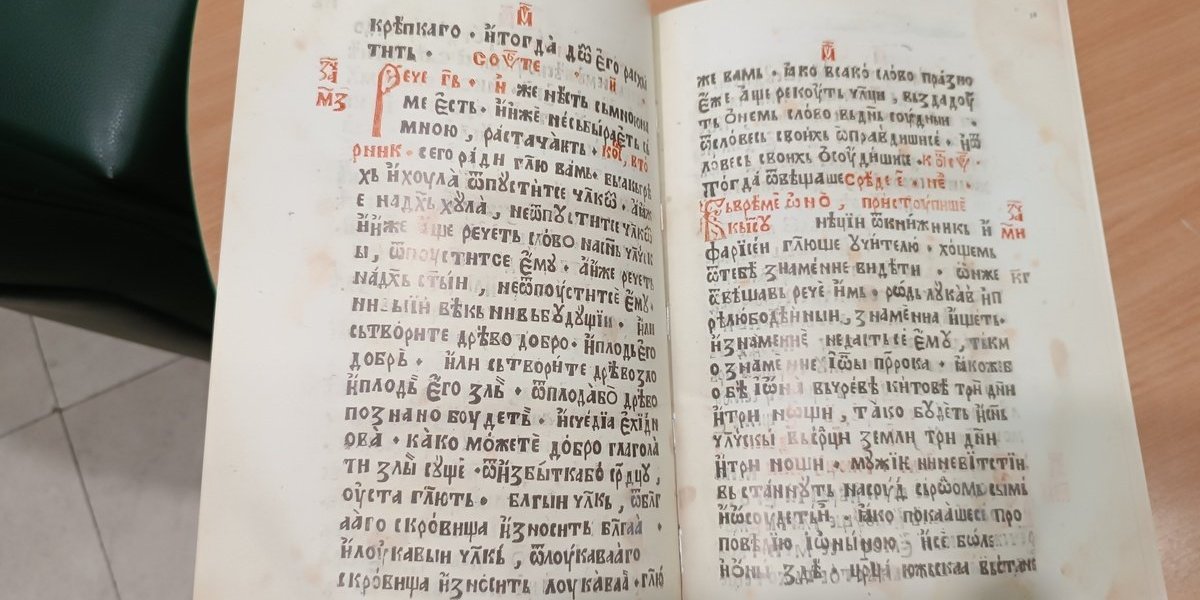 м҃
крѣпкаго · и҆тогда̀ до́мь є҆го̀ расхы
тить · соу́ѿте · и҃ ·
м҃з
Рече г҃ь · и҆же нѣсть сьмною наме
є҆сть · и҆и҆жѐ несьбыраеть сь
мною , растача́кть · кѡ҃ , вто
рник · сего ра́ди гл҃ю ва́мь · вьсакь грѣ
хь и҆хоула̀ ѿпуститсе чл҃кѡ̑ · а҆и҆ж
е на́дх҃ь ху́ла̀ , неѿпоу́ститсе чл҃кѡ̑
и҆и҆же а҆ще рече́ть сло́во насн҃ь чл҃чьск
ы , ѿпоу́ститсе є҆му · а҆и҆же рече́ть
на́дх҃ь ст҃ы́и , неѿпоу́ститсѐ є҆му ·
нивьі́и вѣкь нивьбоу́дущїи · и҆ли
сьтво́рите дрѣ́во добро · и҆пло́дь є҆го
добрь̀ · и҆ли сьтворите дрѣво зло
и҆пло́дь є҆го зль̀ · ѿплода̀бо дрѣво
познано боу́деть · и҆счедїа є҆хі́дн
ова̀ · ка́ко мо́жетѐ до́бро глагола̀
ти злы̀ су́ще · ѿи҆збы́ткабо ср҃дцу ,
оу҆ста гл҃ють · бл҃гыи чл҃кь , ѿбл҃г
а́аго скро́вища и҆зно́сить бл҃гаа ·
и҆лоу́кавыи чл҃кь , ѿлоу́кава́аго
скро́вища и҆зно́сить лоу́ка́ваа · гл҃ю
м҃
же вамь · ꙗ҆ко всако сло́во пра́зно
є҆же а҆ще рекоу́ть чл҃ци , вьздадоу̑
ть ѻ҆немь сло́во вьдн҃ь соу́дныи ·
ѿсло́весь свои́хь ѡ҆пра́вдишисе · и҆ѿ
ло́весь свои́хь ѻ҆соу́дишисе · ко́нць
Тогда ѿвѣщаше сре́де · е҃ · не҃ ·
Вьврѣме ѻ҆но̀ , пристоупише
м҃и
кьі҆су нѣціи ѿкни́жникь и҆
фарїсеи гл҃юще учи́телю · хо́щемь
ѿтебѣ̀ зна́менїе ви́дѣти · ѻ҆нже
ѿвѣща́вь речѐ и҆мь · ро́дь лука́вь и҆п
рѣлюбодѣи́ныи , зна́менїа и҆щеть ·
и҆зна́менїе неда́стьсе є҆му , ткм
о зна́менїе і҆ѡ́ны пр҃рока · ꙗ҆кожеб
о бѣ̀ і҆ѡ́на вьчре́вѣ ки́товѣ три дн҃и
и҆три но́щи , та́ко бу́деть и҆сн҃ь
чл҃чьскы вьср҃дци земли три дн҃и
и҆три но́щи · му́жїе ниневі́тстїи
вьста́нуть насоуд сьро́домь сымь
и҆ѡ҆соуде́ть и҆ · ꙗ҆ко покаа́шесе про
по́вѣдїю і҆ѡ́ниною , и҆се бо́лѥ
і҆ѡ́ны здѐ · цр҃ца ю́жьскаа вьста́не